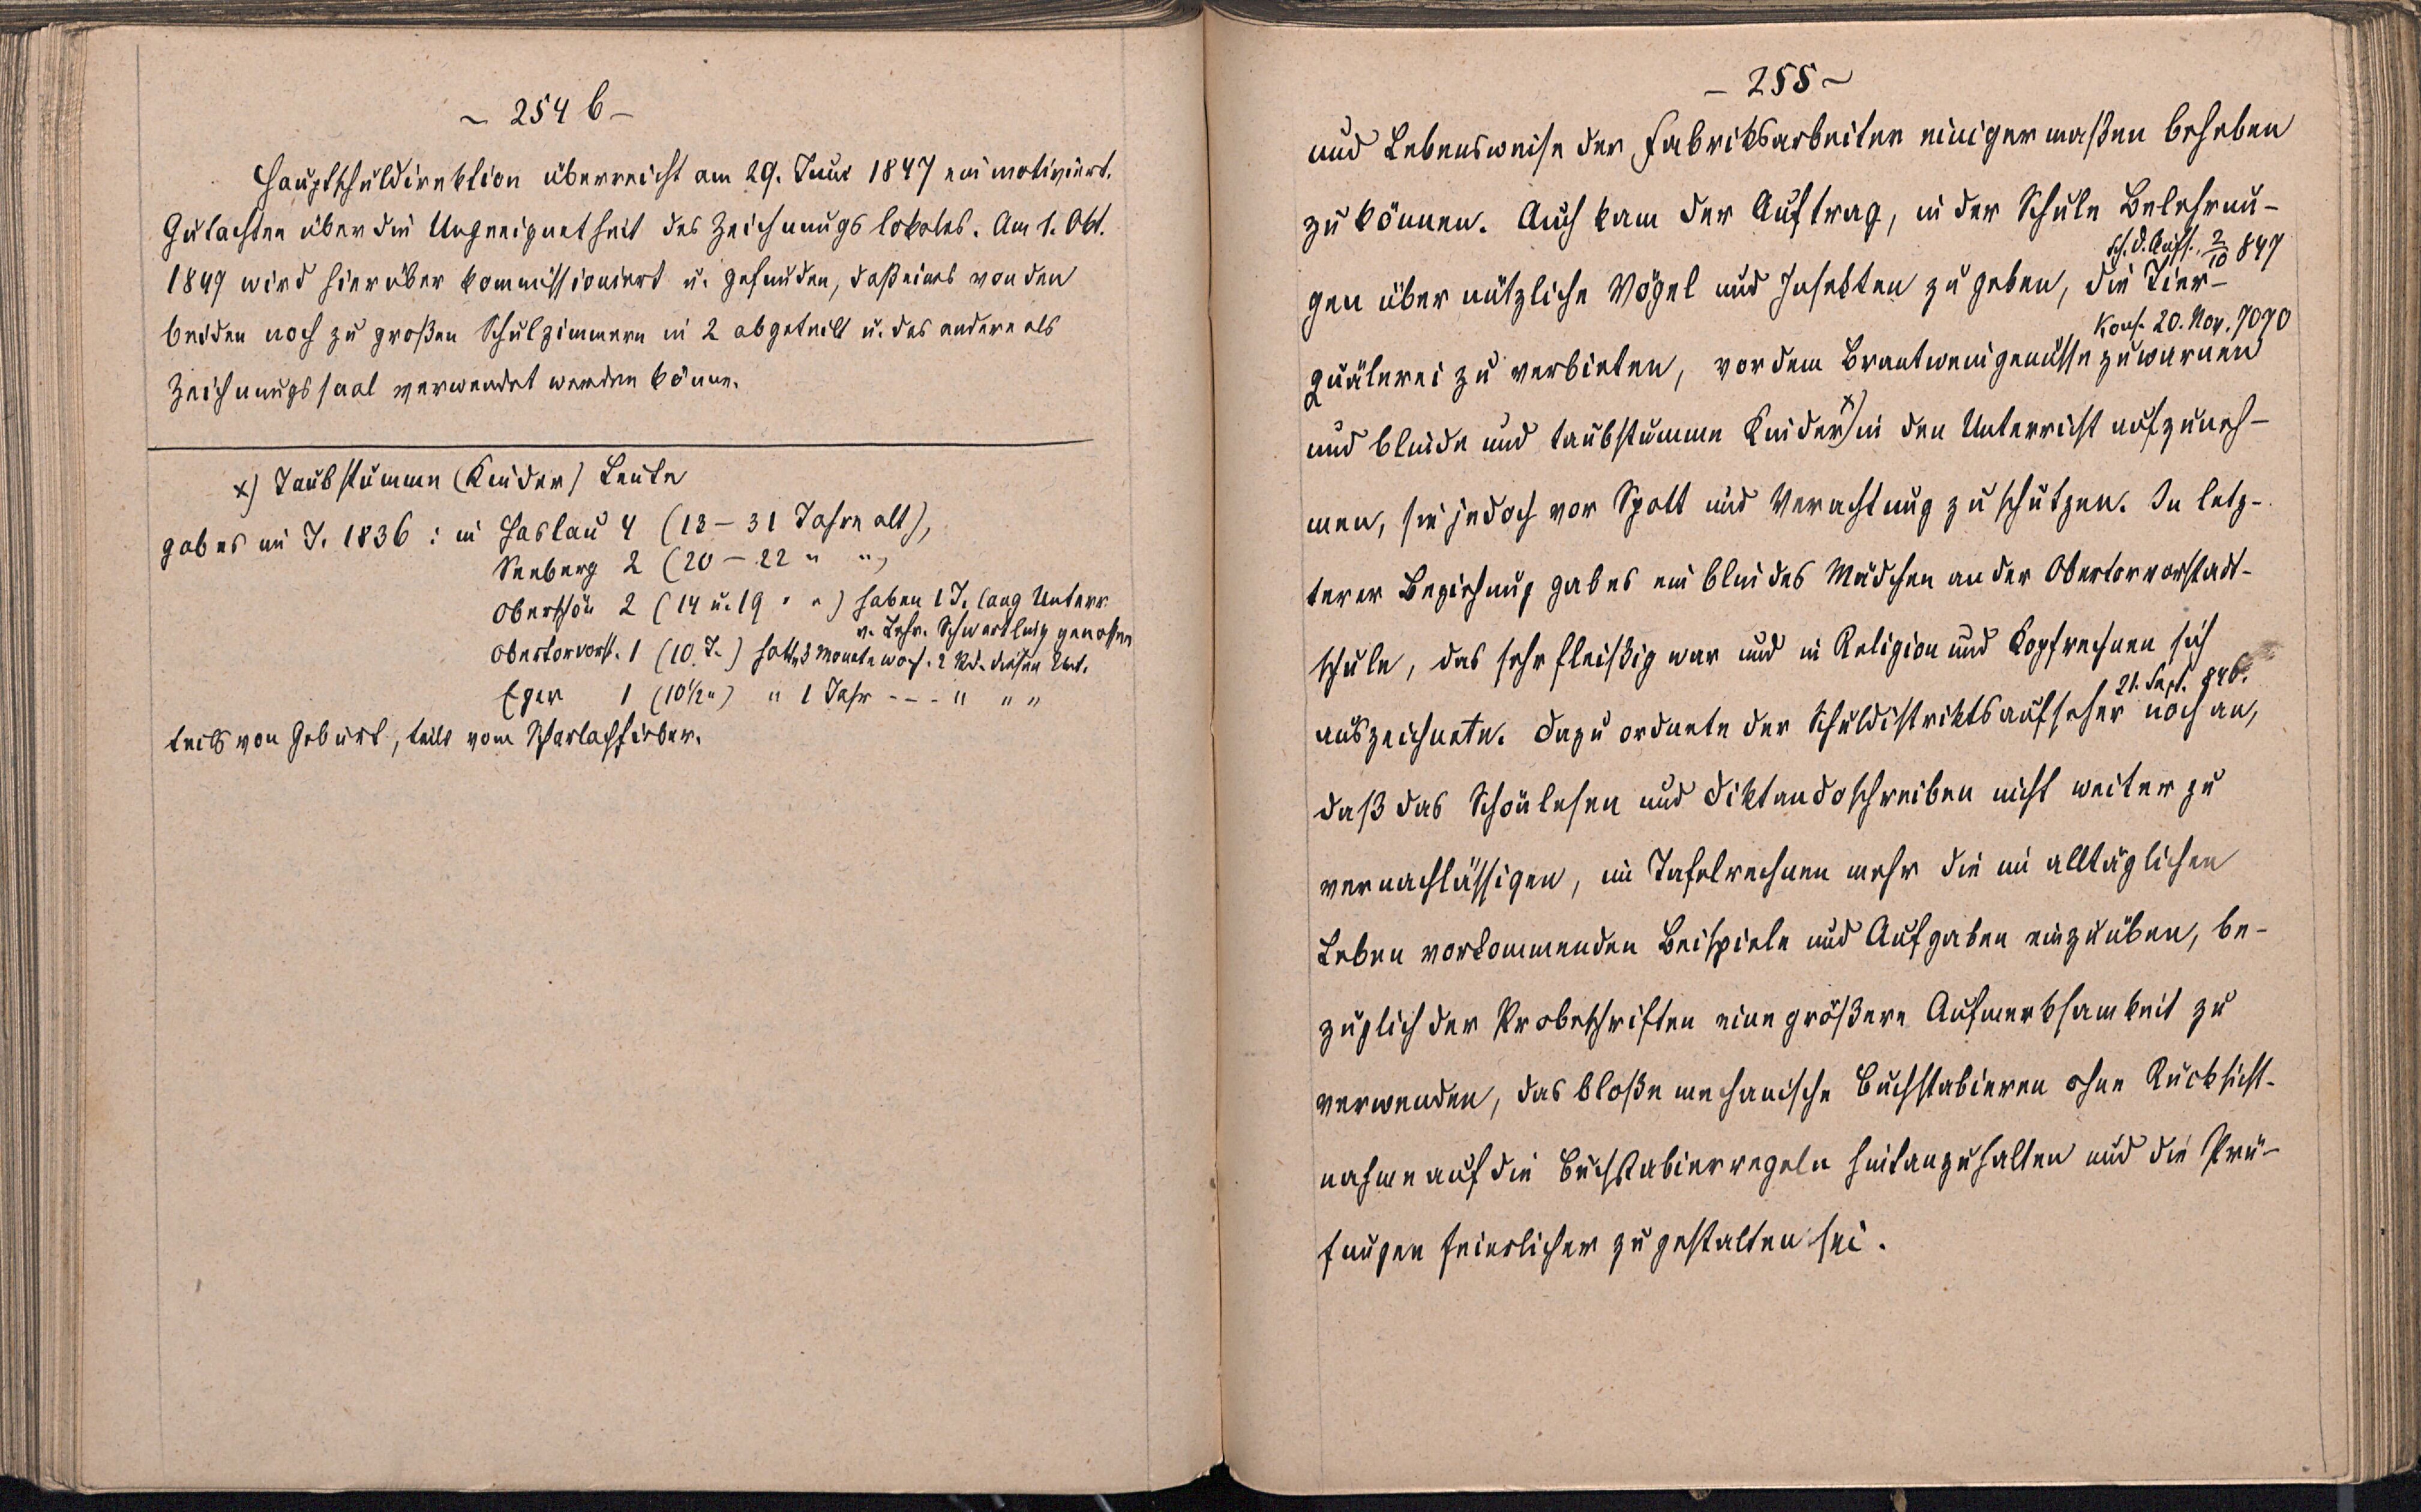 ~ 254 b –
Hauptschuldirektion überreicht am 29. Juni 1847 ein motiviert.
Gutachten über die Ungeeignetheit des Zeichnungslokales. Am 1. Okt.
1849 wird hierüber kommissioniert u. gefunden, daß eines von den
beiden noch zu großen Schulzimmern in 2 abgeteilt u. das andere als
Zeichnungssaal verwendet werden könne.
x) Taubstumme (Kinder) Leute
gab es im J. 1836 : in Haslau 4 (13 – 31 Jahre alt),
Seeberg 2 (20 – 22 " ",
Oberschön 2 (14 u. 19 " ") haben 1 J. lang Unterr.
v. Lehr. genossen
Obertorvorst. 1 (10 J.) hatte 3 Monate woch. 2 Std. diesen Unt.
Eger 1 (10½ ") " 1 Jahr - - - " " "
teils von Geburt, teils vom Scharlachfieber.
– 255 ~
und Lebensweise der Fabriksarbeiter einigermaßen beheben
zu können. Auch kam der Auftrag, in der Schule Belehrun-
Sch. D. Aufs. 2/10 847
gen über nützliche Vögel und Insekten zu geben, die Tier-
Kons. 20. Nov. 7070
quälerei zu verbieten, vor dem Brantweingenusse zu warnen
und blinde und taubstumme Kinder x) in den Unterricht aufzuneh-
men, sie jedoch vor Spott und Verachtung zu schützen. In letz-
terer Beziehung gab es ein blindes Mädchen an der Obertorvorstadt-
schule, das sehr fleißig war und in Religion und Kopfrechnen sich
21. Sept. 846.
auszeichnete. Dazu ordnete der Schuldistriktsaufseher noch an,
daß das Schönlesen und Diktandoschreiben nicht weiter zu
vernachlässigen, im Tafelrechnen mehr die im alltäglichen
Leben vorkommenden Beispiele und Aufgaben einzuüben, be-
züglich der Probeschriften eine größere Aufmerksamkeit zu
verwenden, das bloße mechanische Buchstabieren ohne Rücksicht-
nahme auf die Buchstabierregeln hintanzuhalten und die Prü-
fungen feierlicher zu gestalten sei.